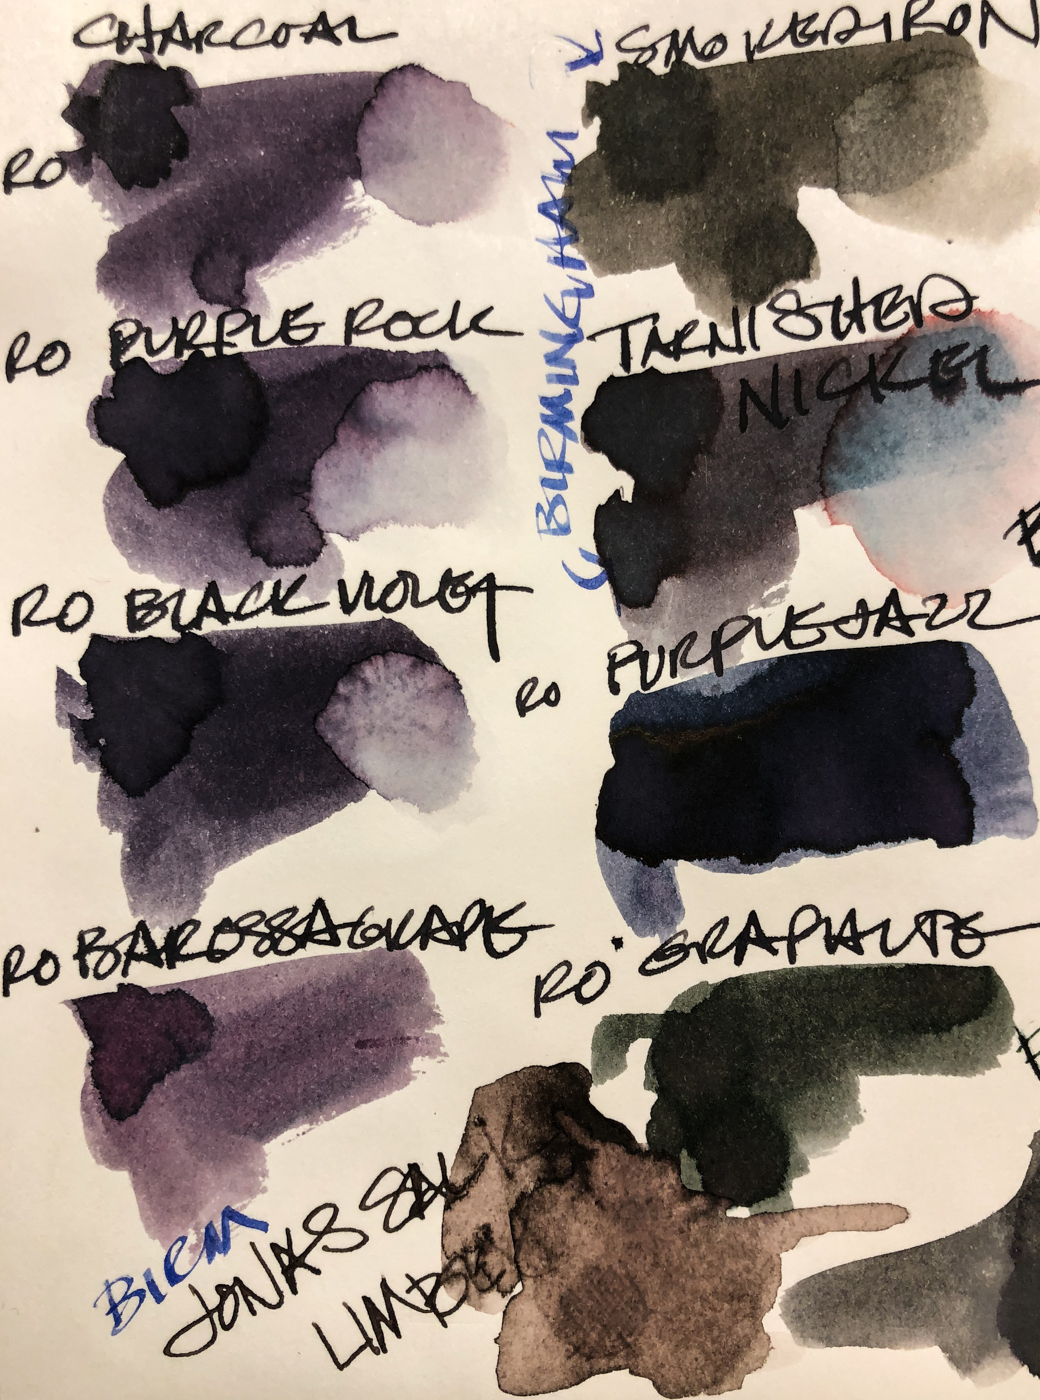 CHARCOAL
RO
SMOKED IRON
BIRMINGHAM
RO PURPLE ROCK
TARNISHED
NICKEL
RO BLACK VIOLET
RO PURPLE JAZZ
RO BAROSSA GRAPE
RO GRAPHITE
BIRM
JONAS SALK
LIMBS